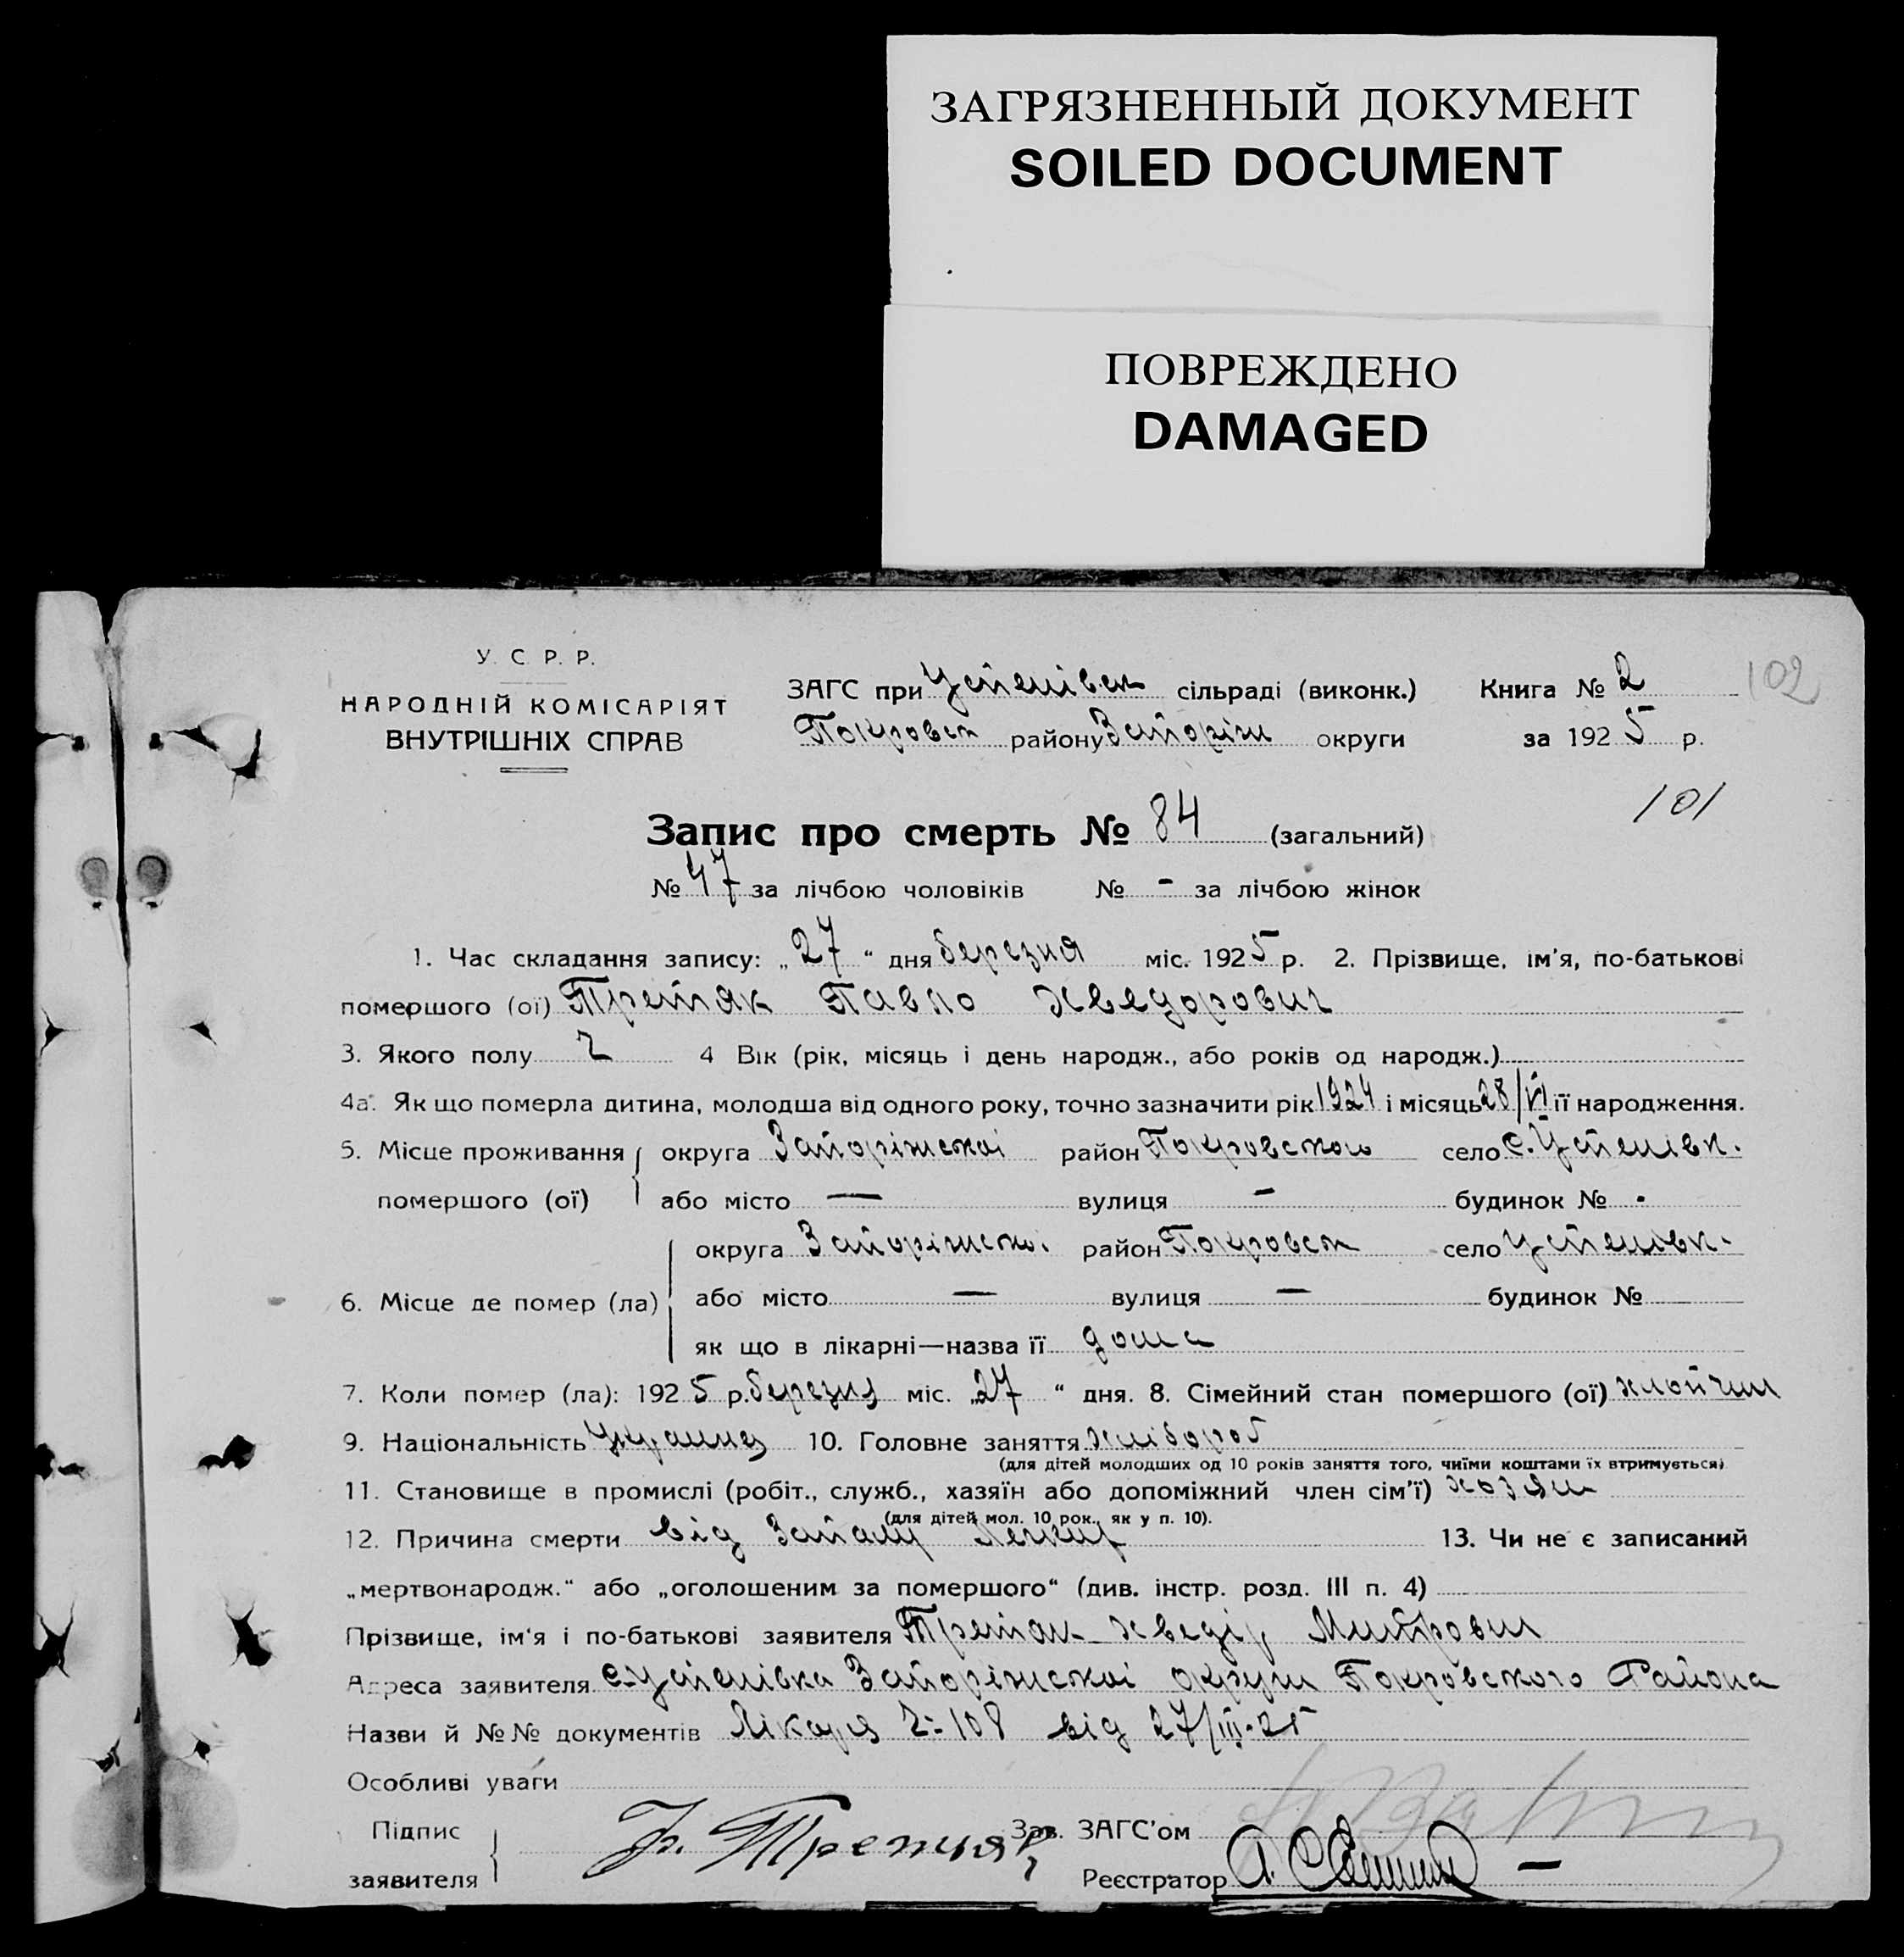 ЗАГРЯЗНЕННЫЙ ДОКУМЕНТ
SOILED DOCUMENT
ПОВРЕЖДЕНО
DAMAGED
У. С. Р. Р.
НАРОДНІЙ КОМІСАРІЯТ
ВНУТРІШНІХ СПРАВ
ЗАГС при Успенівск сільраді (виконк.) Книга № 2 102
Покровск району Запоріж округи за 1925 р.
101
Запис про смерть № 84 (загальний)
№ 47 за лічбою чоловіків № - за лічбою жінок
1. Час складання запису: „27“ дня березня міс. 1925 р. 2. Прізвище, ім'я, по-батькові
помершого (ої) Третяк Павло Хведорович
3. Якого полу ч 4 Вік (рік, місяць і день народж., або років од народж.)
4а. Як що померла дитина, молодша від одного року, точно зазначити рік 1924 і місяць 28/VI її народження.
5. Місце проживання помершого (ої) округа Запоріжської район Покровського село с. Успенівк.
або місто — вулиця — будинок № -
6. Місце де помер (ла) округа Запоріжської район Покровск село Успенівк.
або місто — вулиця — будинок №
як що в лікарні—назва її дома
7. Коли помер (ла): 1925 р. березня міс. „27“ дня. 8. Сімейний стан помершого (ої) хлопчик
9. Національність Украинец 10. Головне заняття хлібороб
(для дітей молодших од 10 років заняття того, чиїми коштами їх втримується)
11. Становище в промислі (робіт., служб., хазяїн або допоміжний член сім'ї) хозяин
(для дітей мол. 10 рок., як у п. 10).
12. Причина смерти від Запалу Легких 13. Чи не є записаний
„мертвонародж.“ або „оголошеним за помершого“ (див. інстр. розд. III п. 4)
Прізвище, ім'я і по-батькові заявителя Третяк Хведір Митрович
Адреса заявителя с. Успенівка Запоріжської округи Покровського Района
Назви й №№ документів Лікаря ч-108 від 27/III-25
Особливі уваги
Підпис заявителя Третяк Зав. ЗАГС'ом
Реєстратор